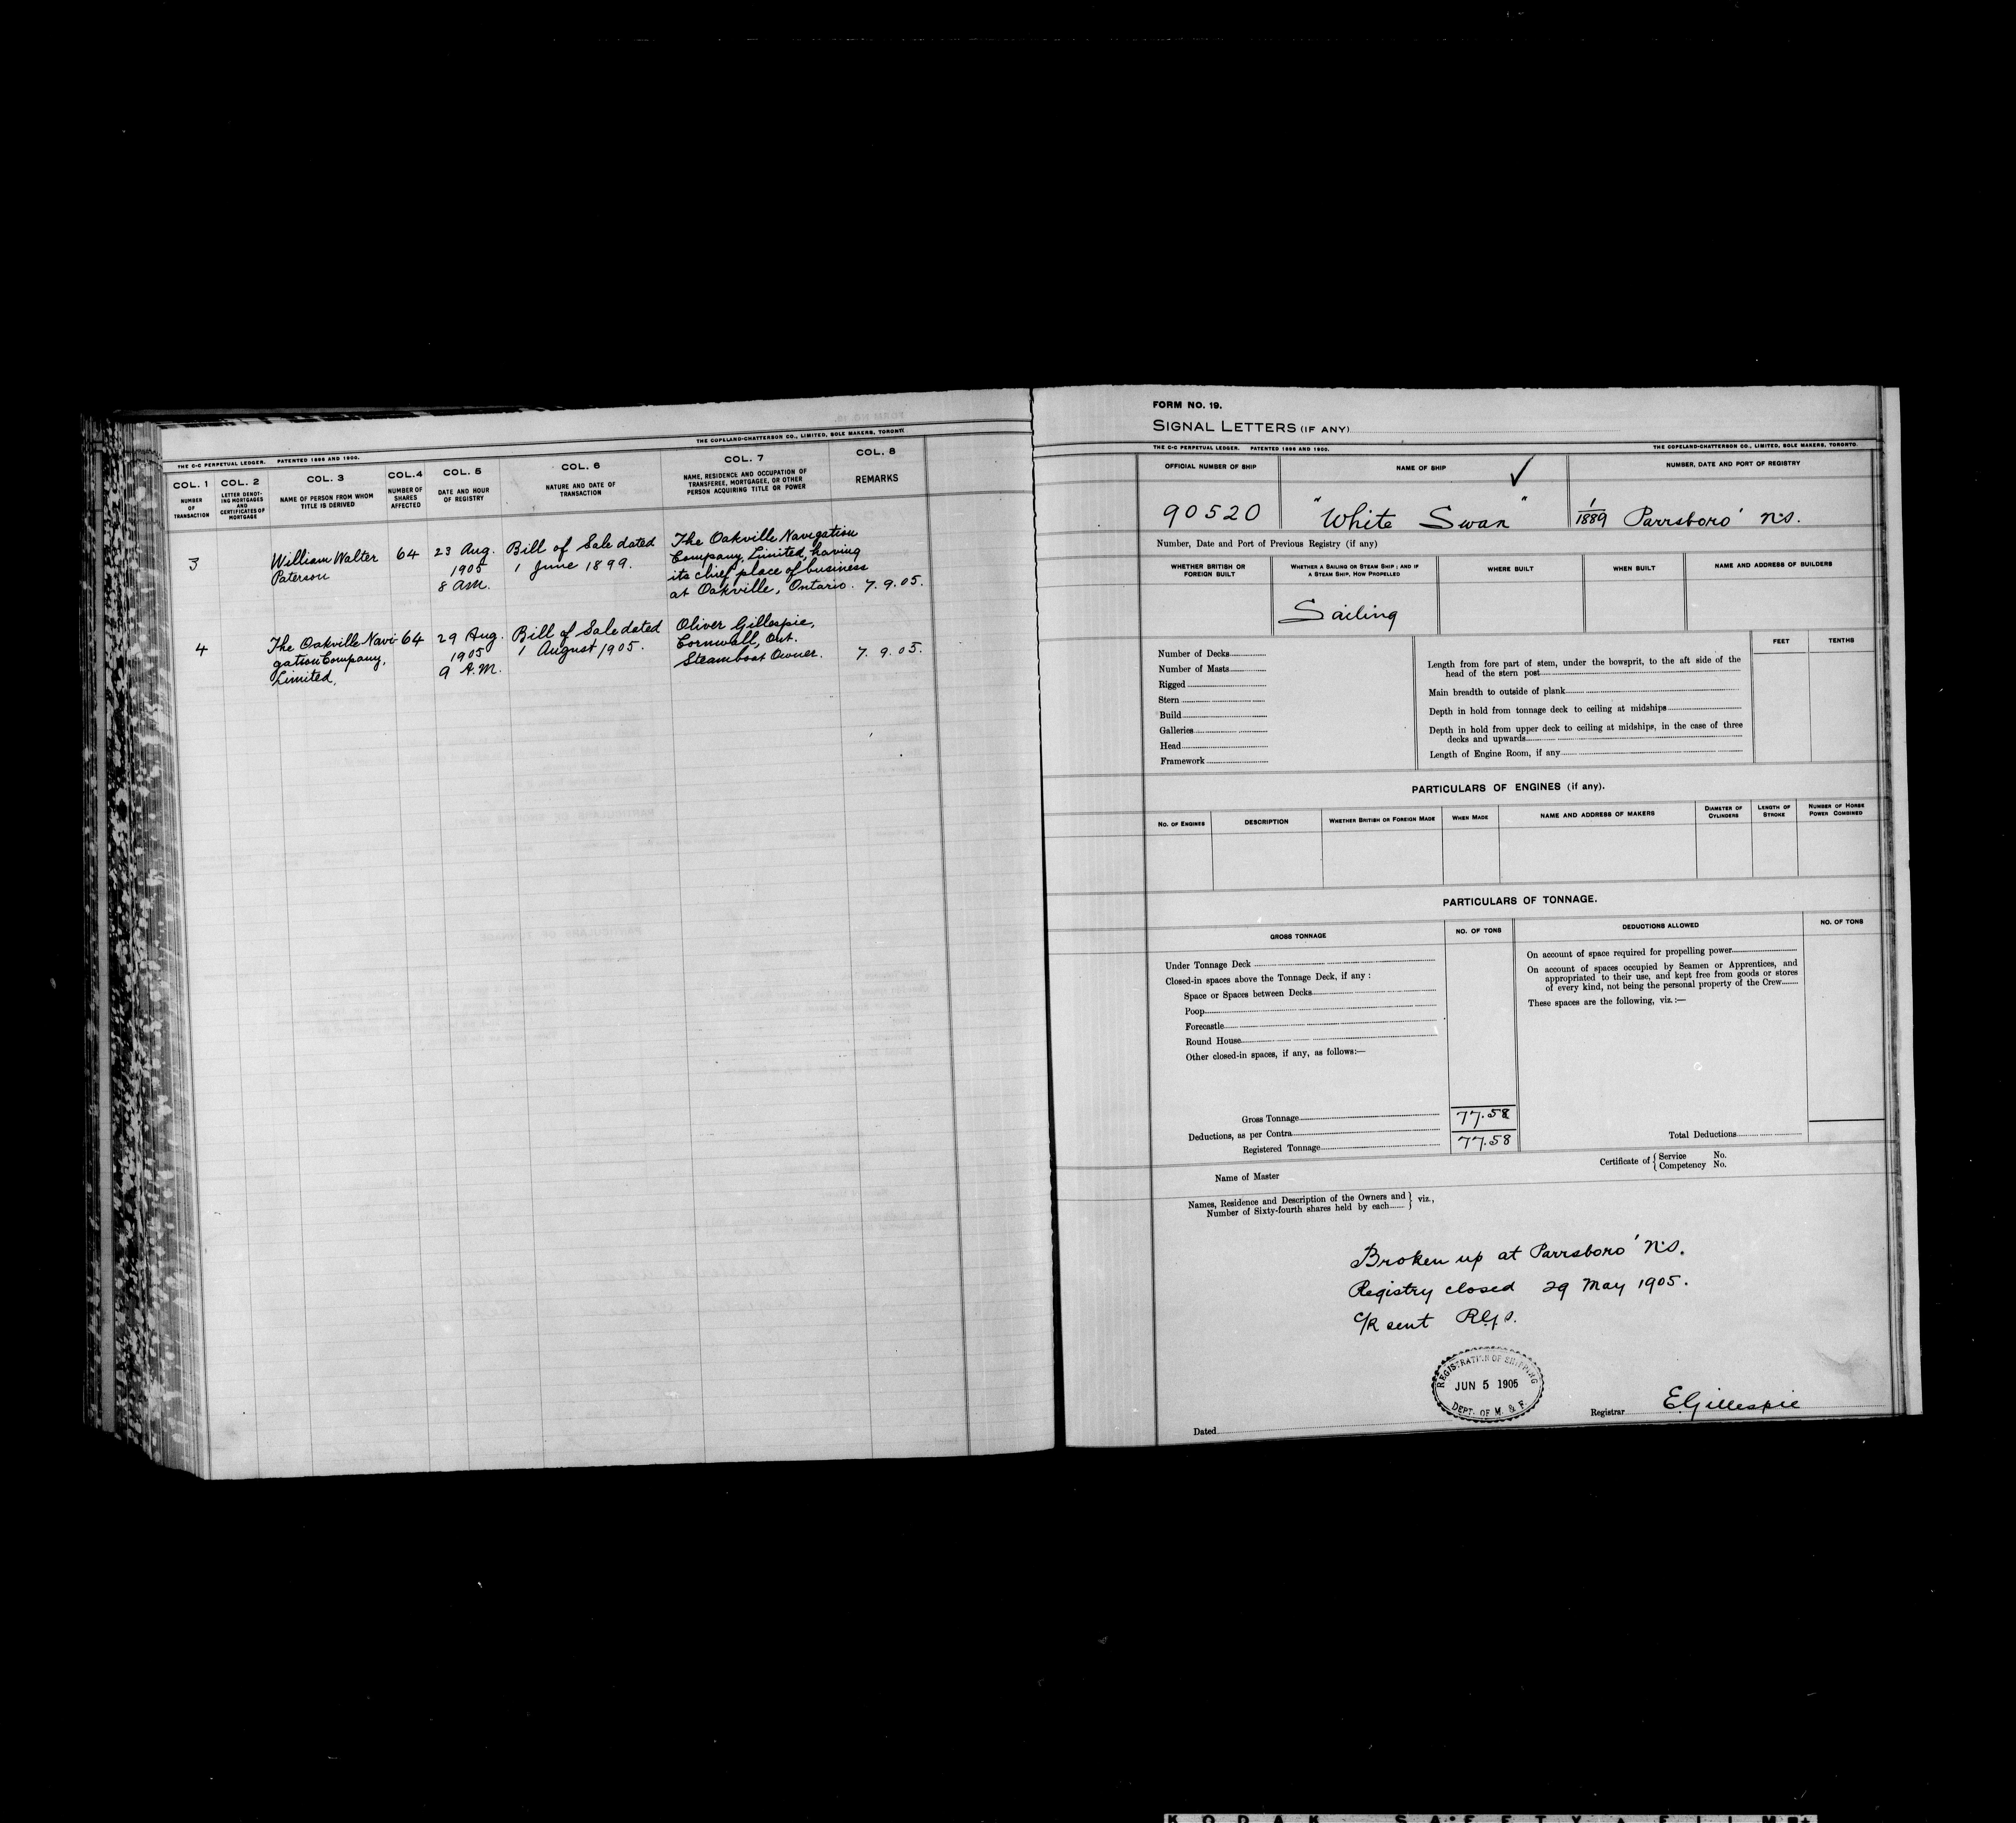 THE COPELAND-CHATTERSON CO., LIMITED, SOLE MAKERS, TORONTO
THE C-C PERPETUAL LEDGER. PATENTED 1896 AND 1900.
COL. 1
NUMBER
OF
TRANSACTION
COL. 2
LETTER DENOT-
ING MORTGAGES
AND
CERTIFICATES OF
MORTGAGE
COL. 3
NAME OF PERSON FROM WHOM
TITLE IS DERIVED
COL. 4
NUMBER OF
SHARES
AFFECTED
COL. 5
DATE AND HOUR
OF REGISTRY
COL. 6
NATURE AND DATE OF
TRANSACTION
COL. 7
NAME, RESIDENCE AND OCCUPATION OF
TRANSFEREE, MORTGAGEE, OR OTHER
PERSON ACQUIRING TITLE OR POWER
COL. 8
REMARKS
3
William Walter
Paterson
64
23 Aug.
1905
8 AM.
Bill of Sale dated
1 June 1899.
The Oakville Navigation
Company, Limited, having
its chief place of business
at Oakville, Ontario.
7. 9. 05.
4
The Oakville Navi-
gation Company,
Limited.
64
29 Aug.
1905
9 A.M.
Bill of Sale dated
1 August 1905.
Oliver Gillespie,
Cornwall, Ont.
Steamboat Owner.
7. 9. 05.
FORM NO. 19.
SIGNAL LETTERS (IF ANY)
THE C-C PERPETUAL LEDGER. PATENTED 1896 AND 1900.
THE COPELAND-CHATTERSON CO., LIMITED, SOLE MAKERS, TORONTO.
OFFICIAL NUMBER OF SHIP
90520
NAME OF SHIP ✓
"White Swan"
NUMBER, DATE AND PORT OF REGISTRY
1/1889 Parrsboro' N.S.
Number, Date and Port of Previous Registry (if any)
WHETHER BRITISH OR
FOREIGN BUILT
WHETHER A SAILING OR STEAM SHIP; AND IF
A STEAM SHIP, HOW PROPELLED
Sailing
WHERE BUILT
WHEN BUILT
NAME AND ADDRESS OF BUILDERS
Number of Decks
Number of Masts
Rigged
Stern
Build
Galleries
Head
Framework
FEET
TENTHS
Length from fore part of stem, under the bowsprit, to the aft side of the
head of the stern post
Main breadth to outside of plank
Depth in hold from tonnage deck to ceiling at midships
Depth in hold from upper deck to ceiling at midships, in the case of three
decks and upwards
Length of Engine Room, if any
PARTICULARS OF ENGINES (if any).
NO. OF ENGINES
DESCRIPTION
WHETHER BRITISH OR FOREIGN MADE
WHEN MADE
NAME AND ADDRESS OF MAKERS
DIAMETER OF
CYLINDERS
LENGTH OF
STROKE
NUMBER OF HORSE
POWER COMBINED
PARTICULARS OF TONNAGE.
GROSS TONNAGE
NO. OF TONS
DEDUCTIONS ALLOWED
NO. OF TONS
Under Tonnage Deck
Closed-in spaces above the Tonnage Deck, if any:
Space or Spaces between Decks
Poop
Forecastle
Round House
Other closed-in spaces, if any, as follows:—
On account of space required for propelling power
On account of spaces occupied by Seamen or Apprentices, and
appropriated to their use, and kept free from goods or stores
of every kind, not being the personal property of the Crew
These spaces are the following, viz.:—
Gross Tonnage 77.58
Deductions, as per Contra
Registered Tonnage 77.58
Total Deductions
Name of Master
Certificate of { Service No.
Competency No.
Names, Residence and Description of the Owners and
Number of Sixty-fourth shares held by each } viz.,
Broken up at Parrsboro' N.S.
Registry closed 29 May 1905.
C/R sent R.G.S.
REGISTRATION OF SHIPPING
JUN 5 1905
DEPT. OF M. & F.
Dated
Registrar EGillespie
KODAK SAFETY FILM